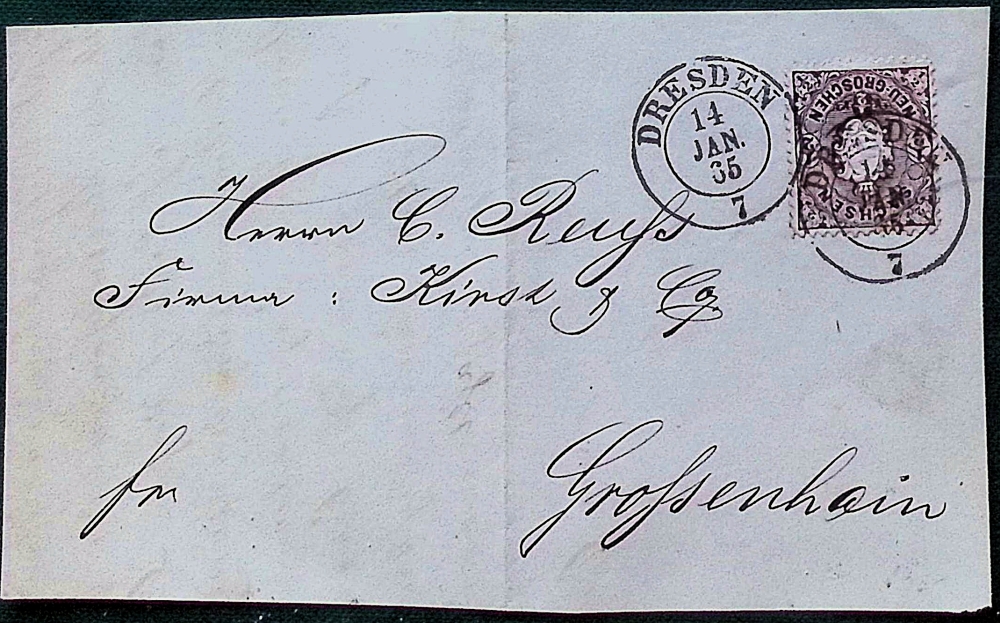 DRESDEN
14
JAN.
65
7
NEU-GROSCHEN
SACHSEN
DRESDEN
JAN.
65
7
Herrn C. Reuſs
Firma : Kirst & Co
fr
Groſsenhain